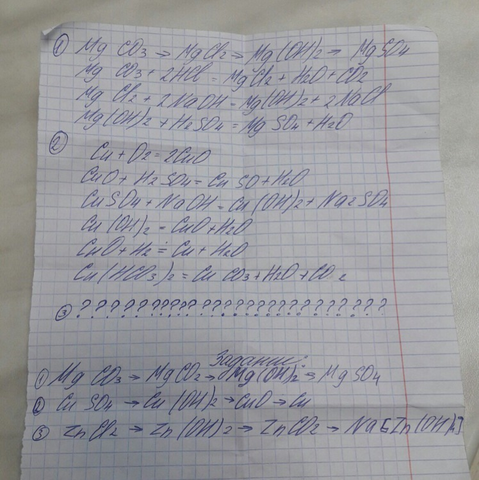 ① Mg CO3 → MgCl2 → Mg(OH)2 → MgSO4
Mg CO3 + 2HCl = MgCl2 + H2O + CO2
Mg Cl2 + 2NaOH = Mg(OH)2 + 2NaCl
Mg(OH)2 + H2SO4 = Mg SO4 + H2O
②
Cu + O2 = 2CuO
CuO + H2SO4 = Cu SO + H2O
CuSO4 + NaOH = Cu(OH)2 + Na2SO4
Cu(OH)2 = CuO + H2O
CuO + H2 = Cu + H2O
Cu(HCO3)2 = Cu CO3 + H2O + CO2
③ ? ? ? ? ? ? ? ? ? ? ? ? ? ? ? ? ? ? ? ? ? ? ? ? ?
Задание:
① Mg CO3 → MgCO2 → Mg(OH)2 → MgSO4
② Cu SO4 → Cu(OH)2 → CuO → Cu
③ ZnCl2 → Zn(OH)2 → ZnCO2 → Na[Zn(OH)4]